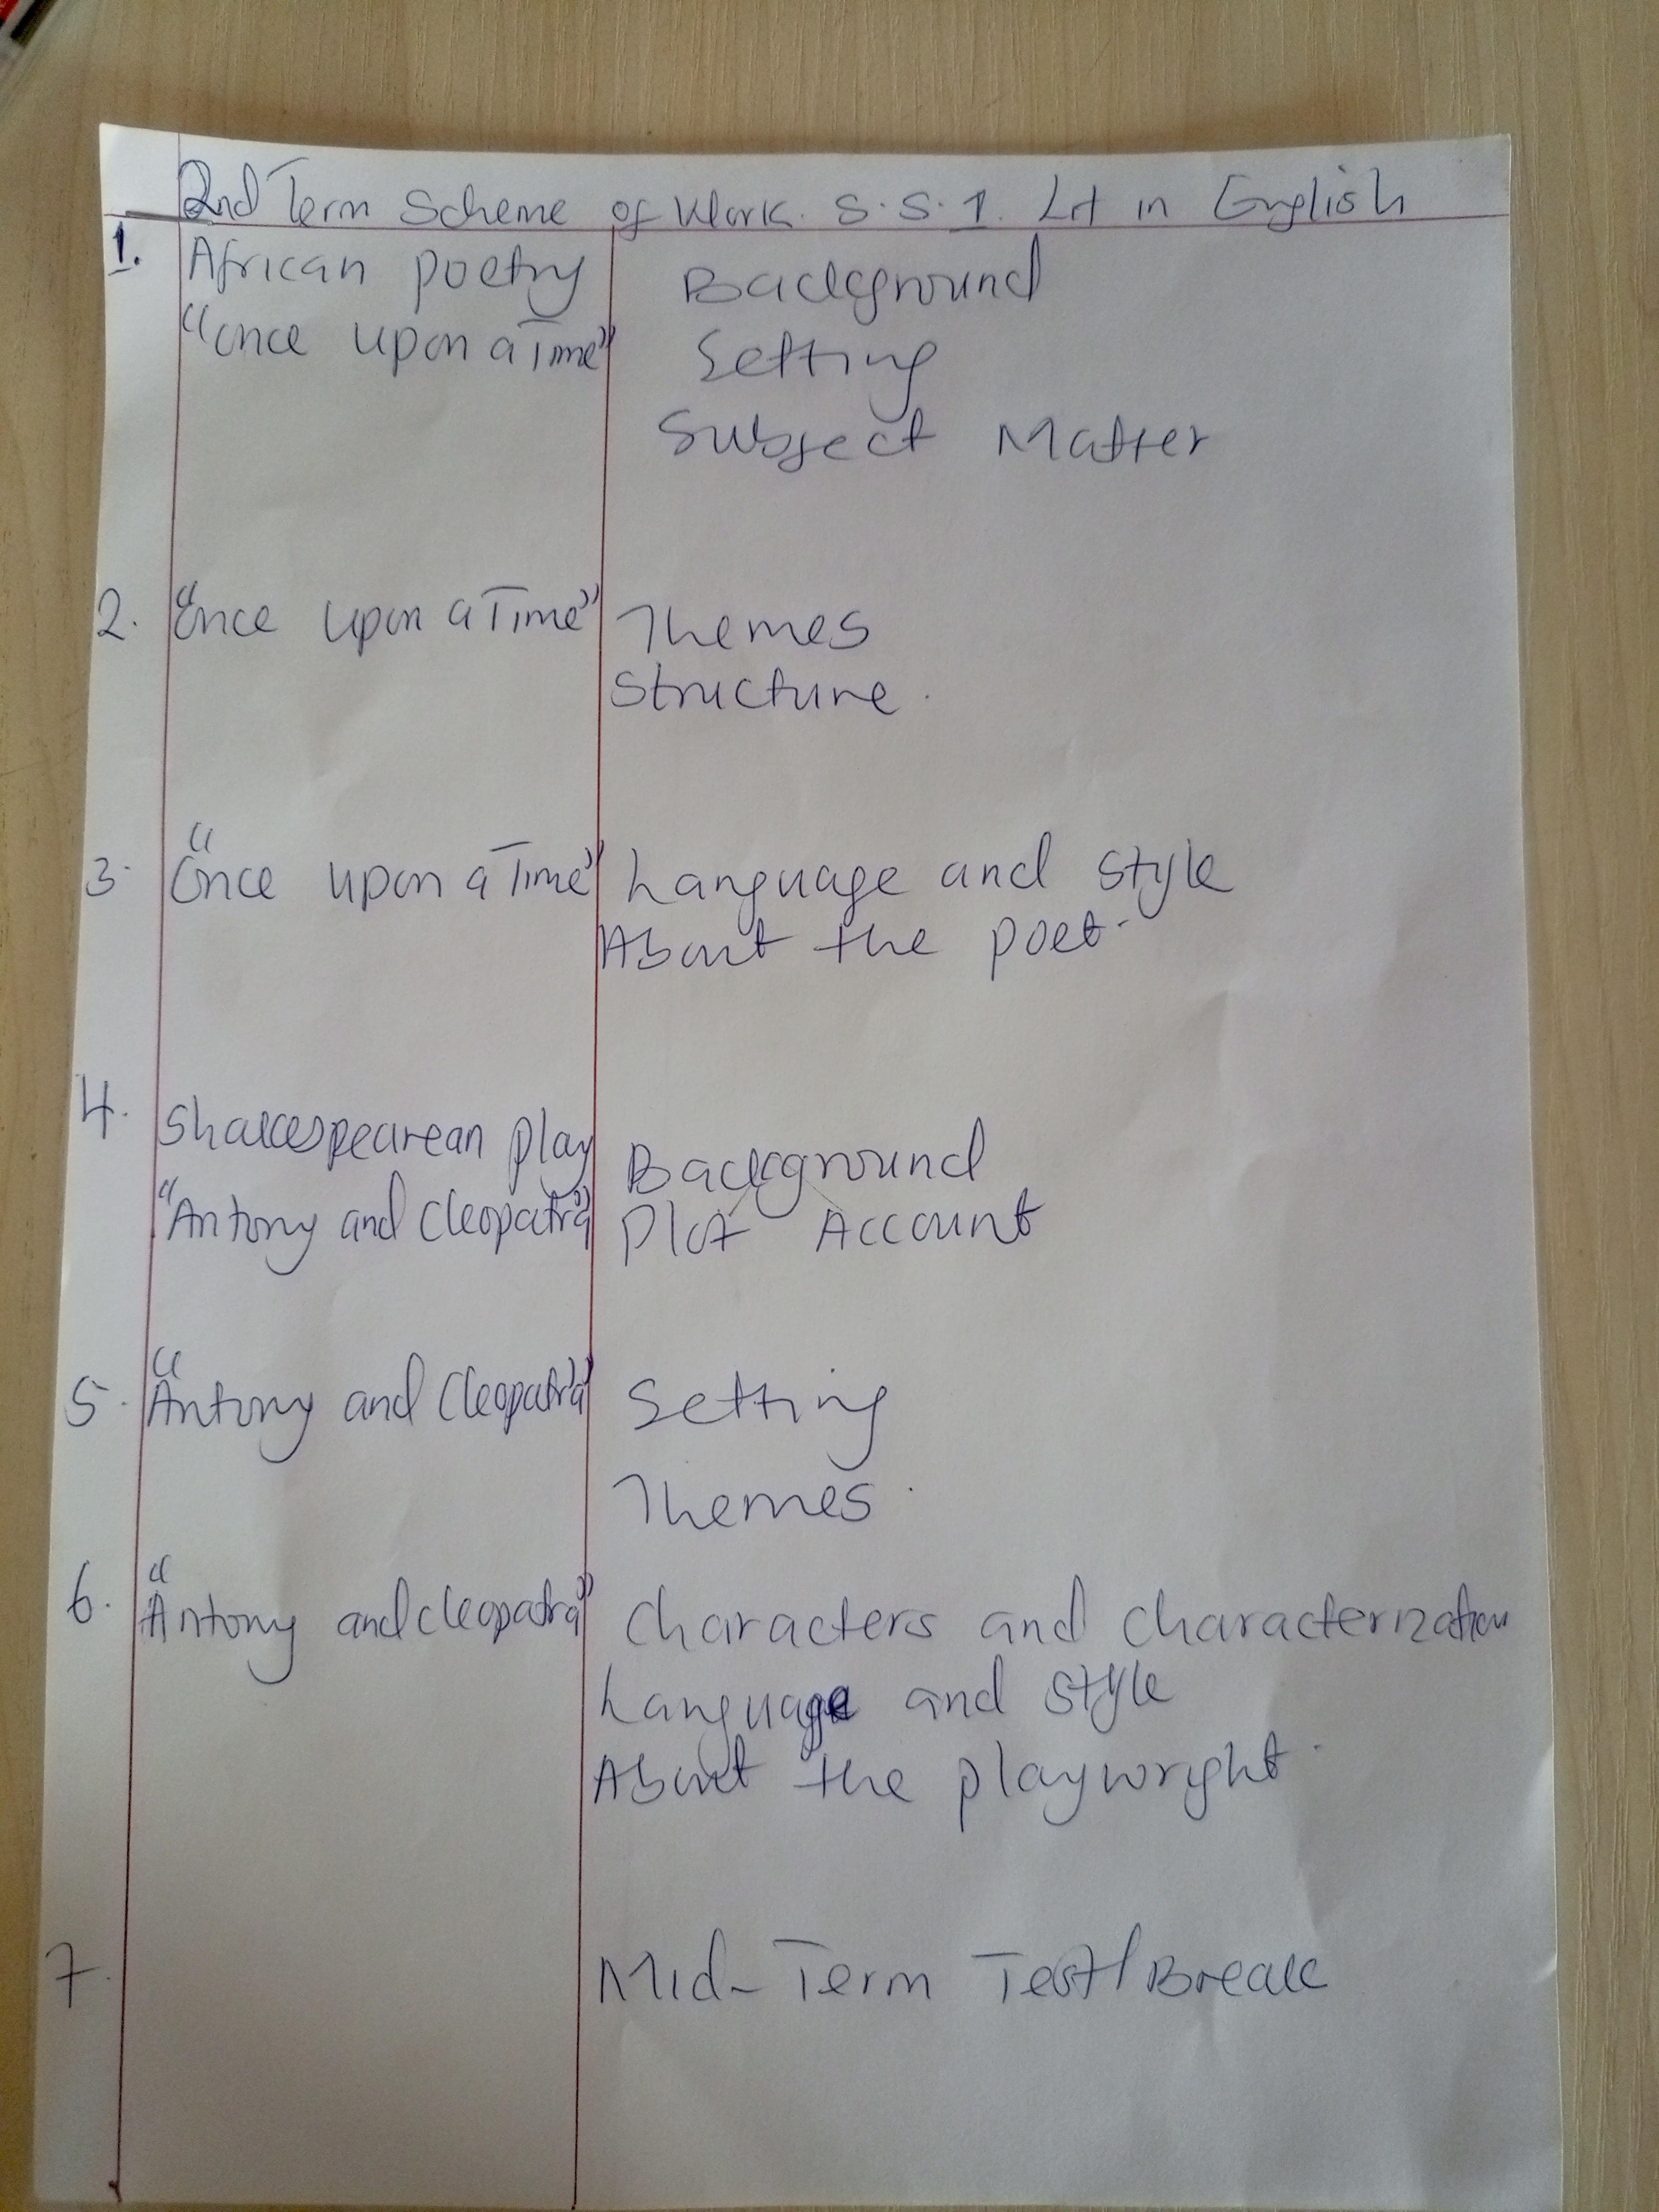 2nd Term Scheme of Work. S.S.1. Lit in English
1. African poetry Background
"once upon a Time" Setting
Subject Matter
2. "Once upon a Time" Themes
Structure.
3. "Once upon a Time" Language and style
About the poet.
4. Shakespearean play Background
"Antony and Cleopatra" Plot Account
5. "Antony and Cleopatra" Setting
Themes.
6. "Antony and Cleopatra" Characters and characterization
Language and style
About the playwright.
7. Mid-Term Test/Break